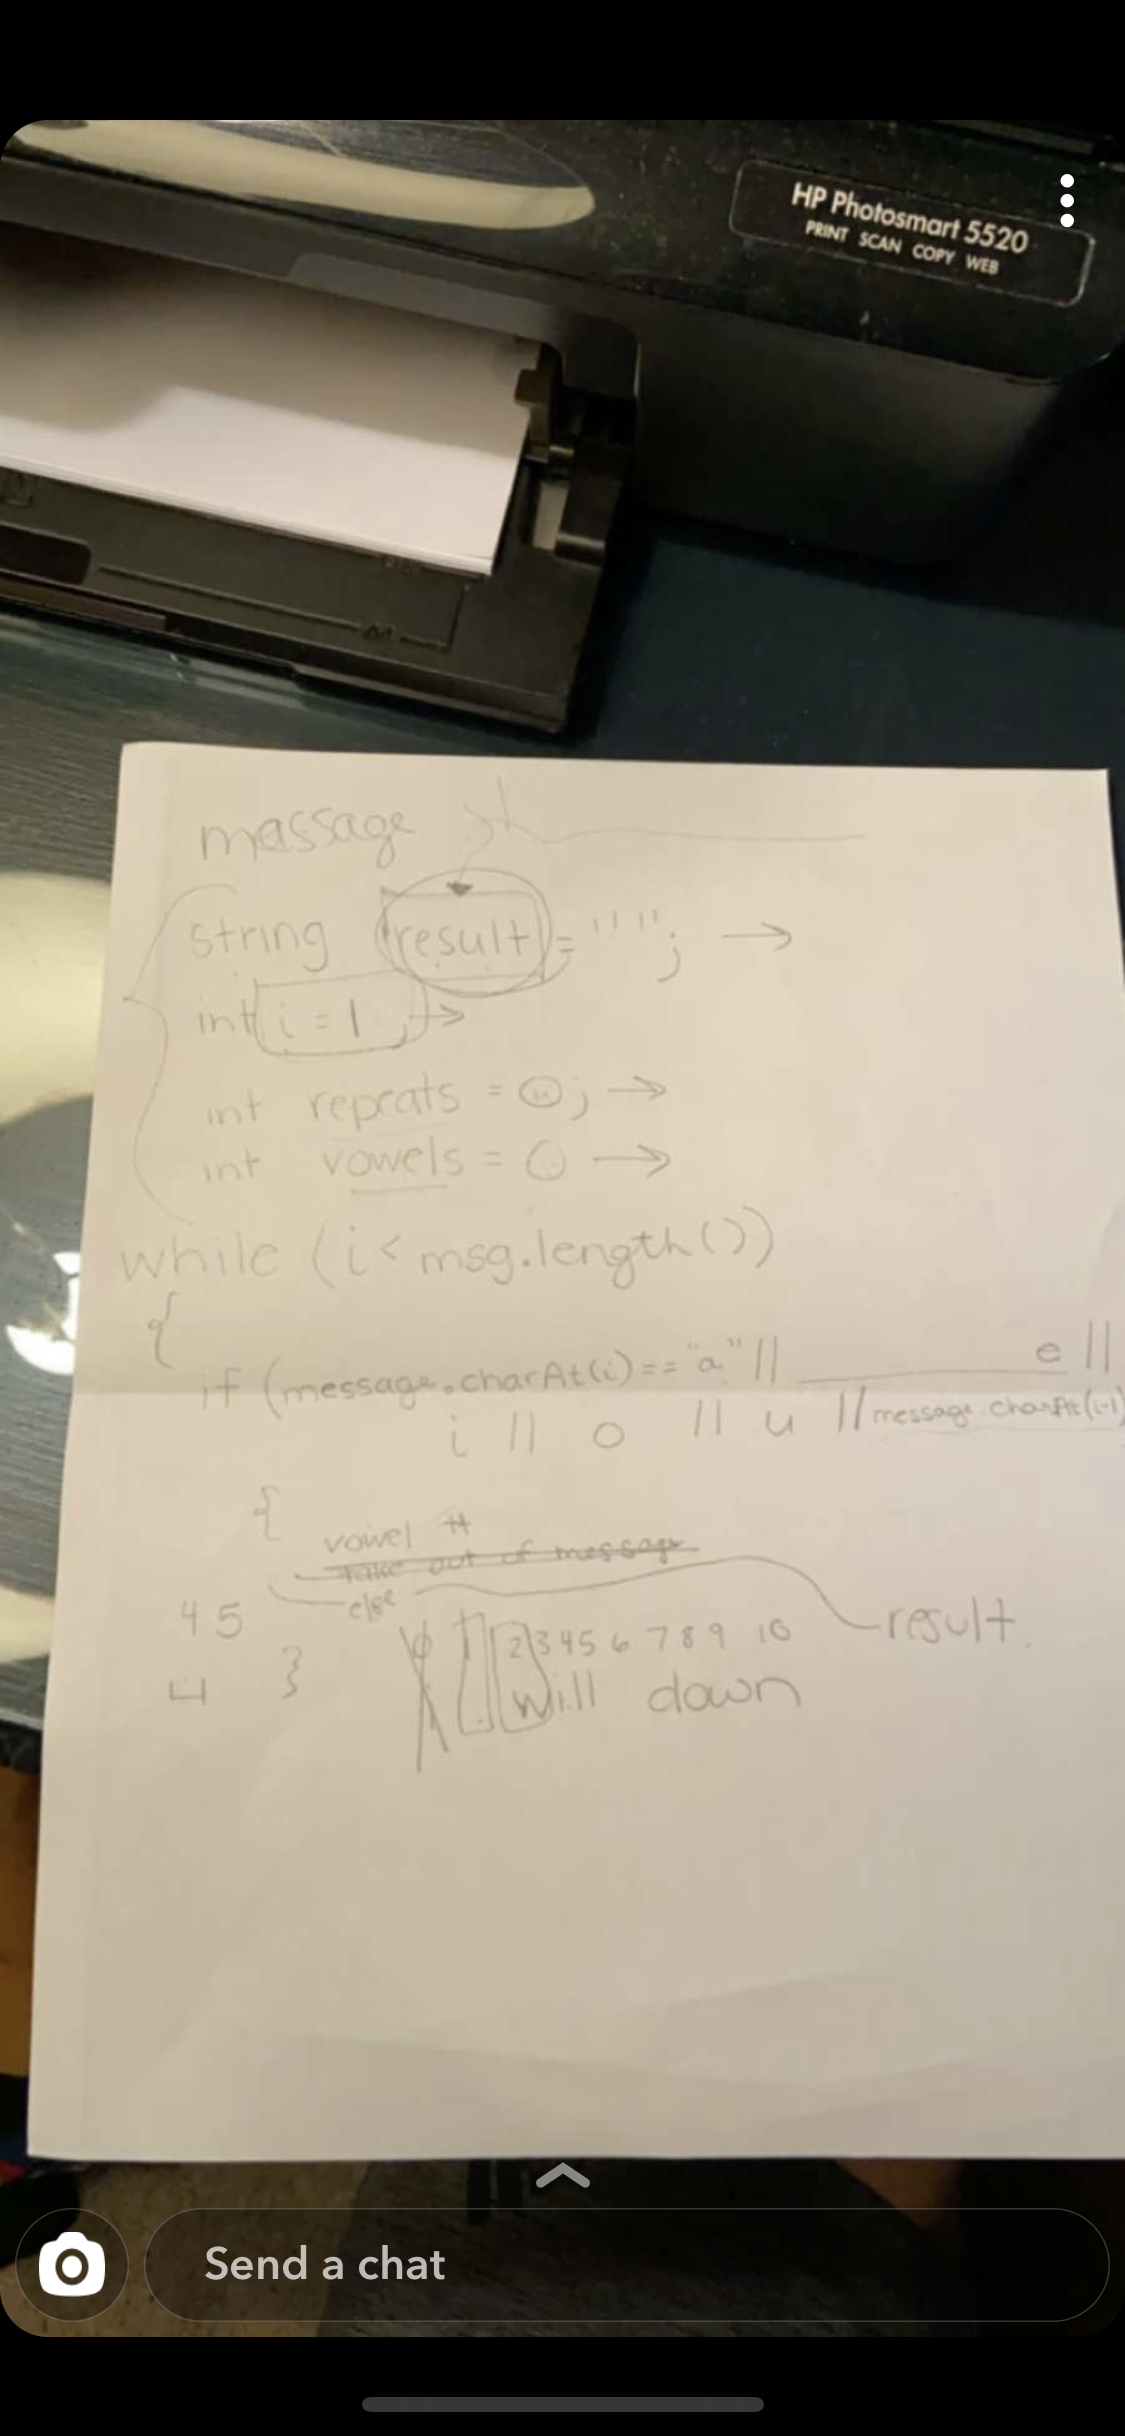 HP Photosmart 5520
PRINT SCAN COPY WEB
message
string result = "";
int i = 1;
int repeats = 0;
int vowels = 0
while (i < msg.length())
{
if (message.charAt(i) == "a" || e ||
i || o || u || message.charAt(i-1)
{
vowel ++
take out of message
else
4 5
0 1 2 3 4 5 6 7 8 9 10
result.
}
will down
Send a chat